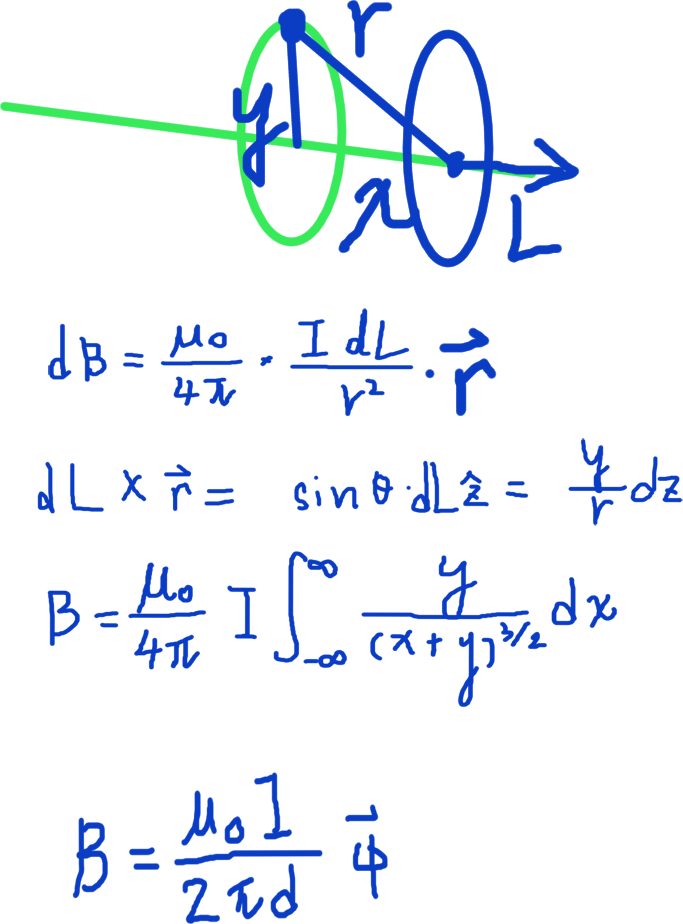 r
y
x
L
dB = μ₀/4π · I dL/r² · r⃗
dL × r⃗ = sinθ·dL ẑ = y/r dz
B = μ₀/4π I ∫_{-∞}^{∞} y/(x+y)^{3/2} dx
B = μ₀I/2πd ϕ⃗